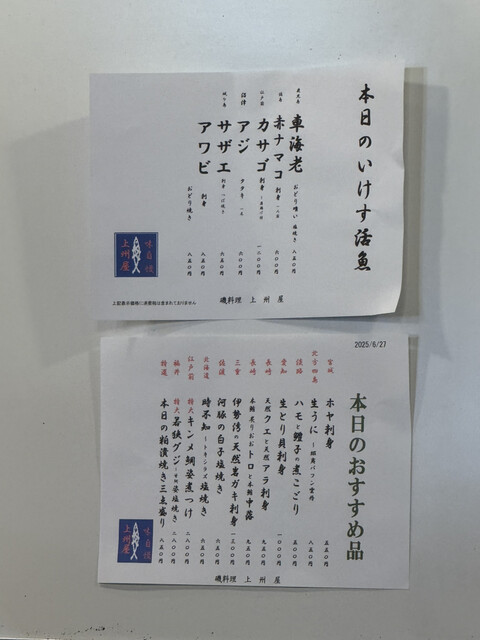 本日のいけす活魚
鹿児島 車海老 おどり喰い 塩焼き 八五〇円
赤ナマコ 刺身 六〇〇円
江戸前 カサゴ 刺身 一二〇〇円
沼津 アジ タタキ 六〇〇円
サザエ 刺身 つぼ焼き 六五〇円
アワビ 刺身 おどり焼き 八五〇円
味自慢
上州屋
上記表示価格に消費税は含まれておりません
磯料理 上州屋
2025/6/27
本日のおすすめ品
宮城 ホヤ刺身 五五〇円
北方四島 生うに 八五〇円
淡路 ハモと鱧子の煮こごり 五〇〇円
愛知 生とり貝刺身 一〇〇〇円
長崎 天然クエと天然アラ刺身 九五〇円
長崎 本鮪炙りおおトロと本鮪中落 九五〇円
三重 伊勢湾の天然岩ガキ刺身 一三〇〇円
河豚の白子塩焼き 六五〇円
北海道 時不知 トキシラズ 塩焼き 六五〇円
江戸前 特大キンメ鯛姿煮つけ 二八〇〇円
福井 特大若狭グジ 姿塩焼き 二八〇〇円
特選 本日の粕漬焼き三点盛り 八五〇円
味自慢
上州屋
磯料理 上州屋